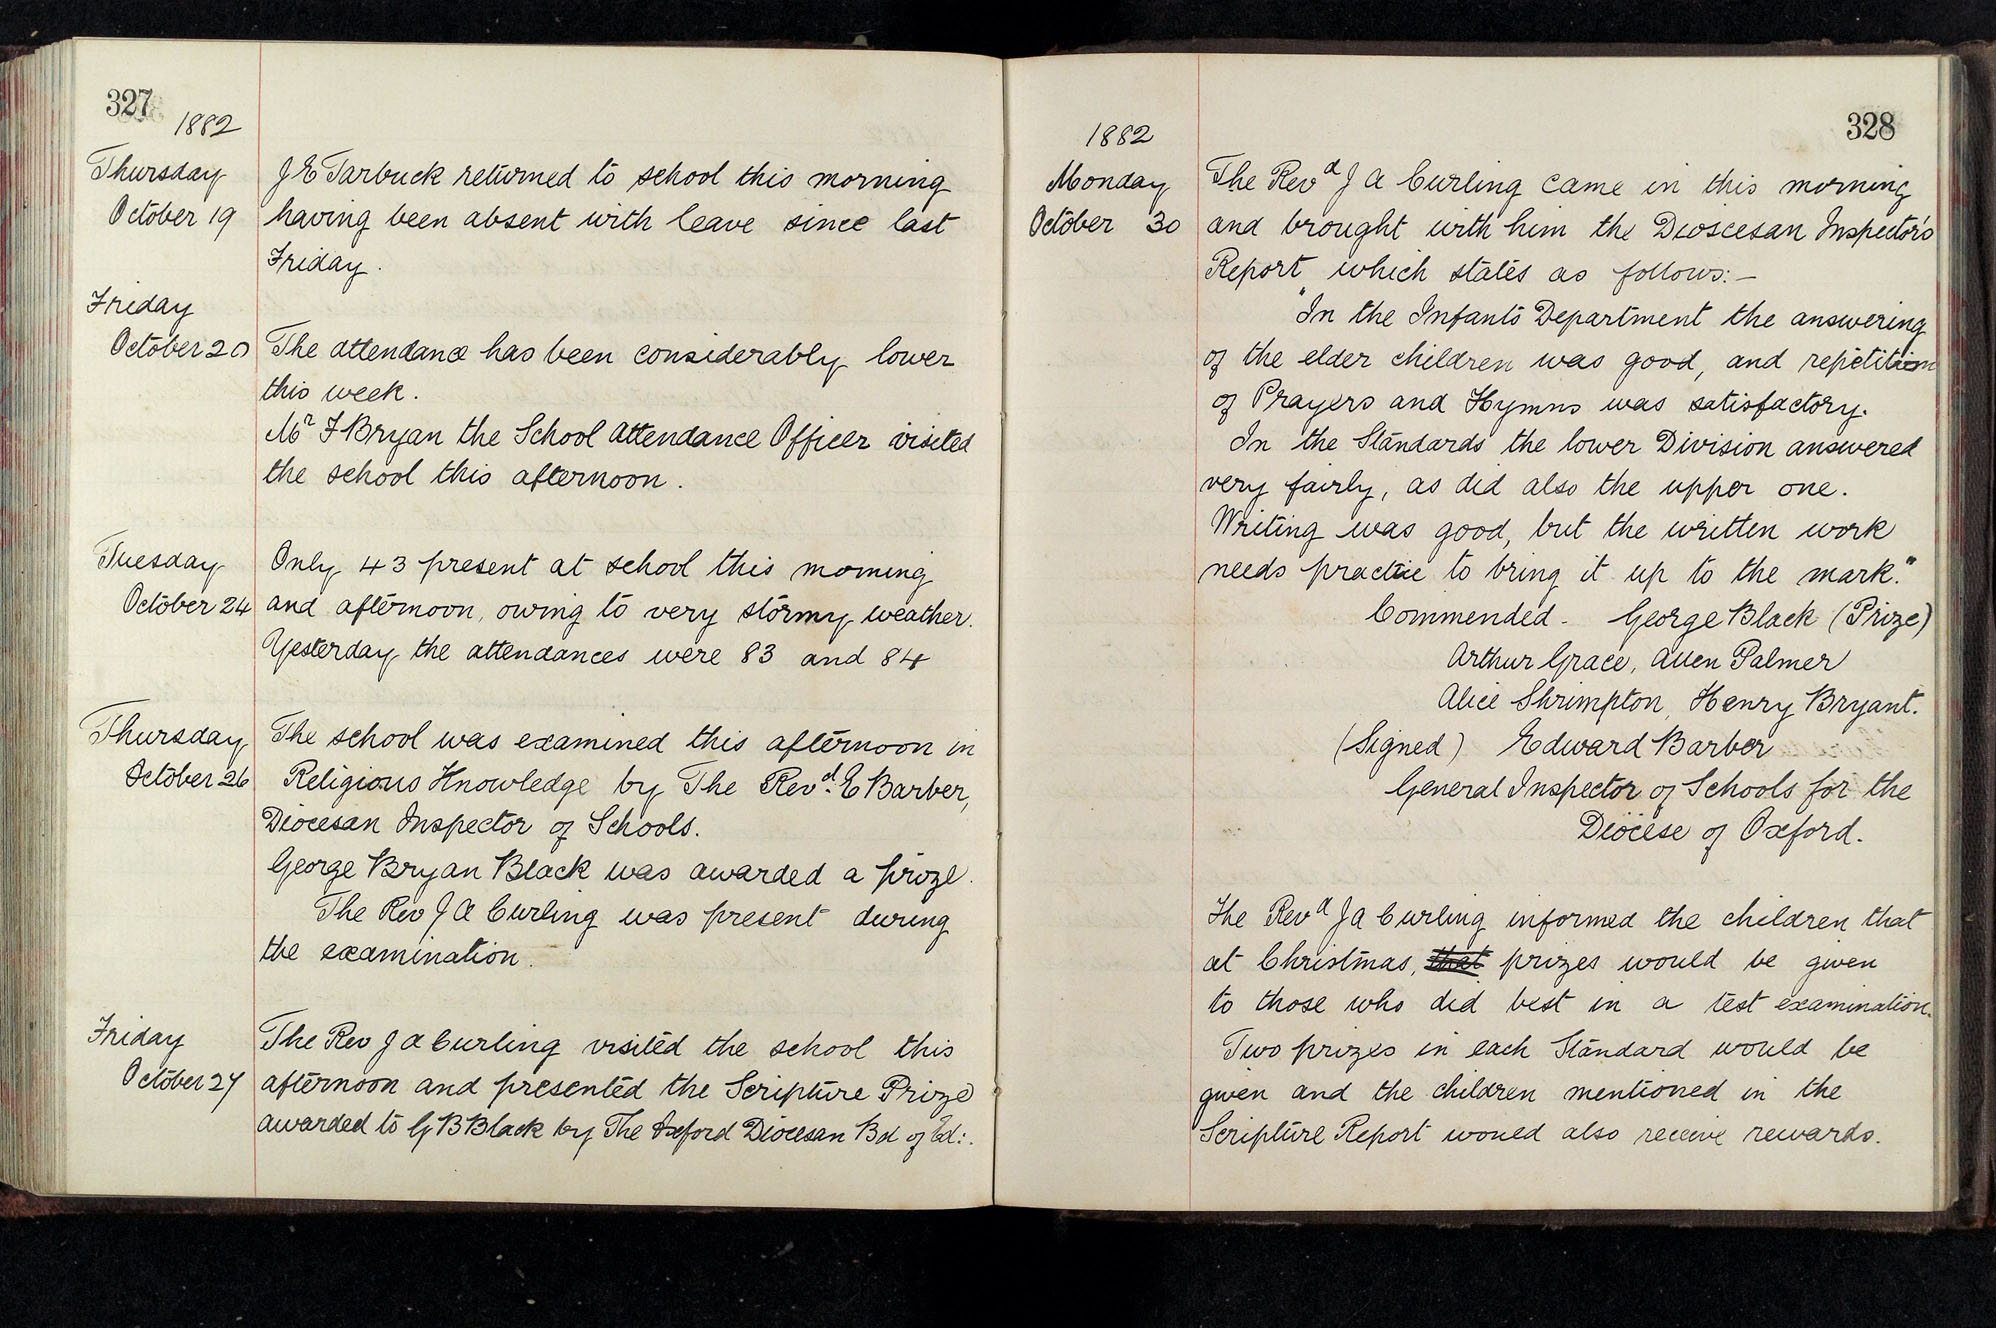 327
1882
Thursday
October 19
J E Tarbuck returned to school this morning
having been absent with leave since last
Friday.
Friday
October 20
The attendance has been considerably lower
this week.
Mr F Bryan the School Attendance Officer visited
the school this afternoon.
Tuesday
October 24
Only 43 present at school this morning
and afternoon, owing to very stormy weather.
Yesterday the attendances were 83 and 84
Thursday
October 26
The school was examined this afternoon in
Religious Knowledge by The Revd. E Barber,
Diocesan Inspector of Schools.
George Bryan Black was awarded a prize.
The Rev J A Curling was present during
the examination.
Friday
October 27
The Rev J A Curling visited the school this
afternoon and presented the Scripture Prize
awarded to G B Black by The Oxford Diocesan Bd of Ed:.
328
1882
Monday
October 30
The Revd J A Curling came in this morning
and brought with him the Dioscesan Inspector's
Report, which states as follows:-
"In the Infants Department the answering
of the elder children was good, and repetition
of Prayers and Hymns was satisfactory.
In the Standards the lower Division answered
very fairly, as did also the upper one.
Writing was good, but the written work
needs practice to bring it up to the mark."
Commended - George Black (Prize)
Arthur Grace, Allen Palmer
Alice Shrimpton, Henry Bryant.
(Signed) Edward Barber
General Inspector of Schools for the
Diocese of Oxford.
The Revd J A Curling informed the children that
at Christmas, that prizes would be given
to those who did best in a test examination.
Two prizes in each Standard would be
given and the children mentioned in the
Scripture Report would also receive rewards.